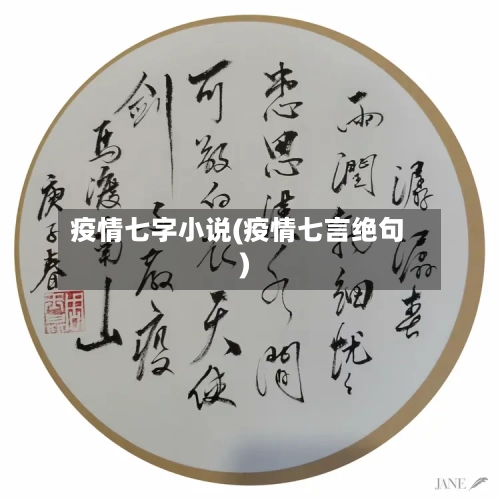 潺潺春
雨润细忧忧
愁思汉水间
可敬白衣天使
剑疫
马渡南山
庚子春
疫情七字小说(疫情七言绝句
)
JANE